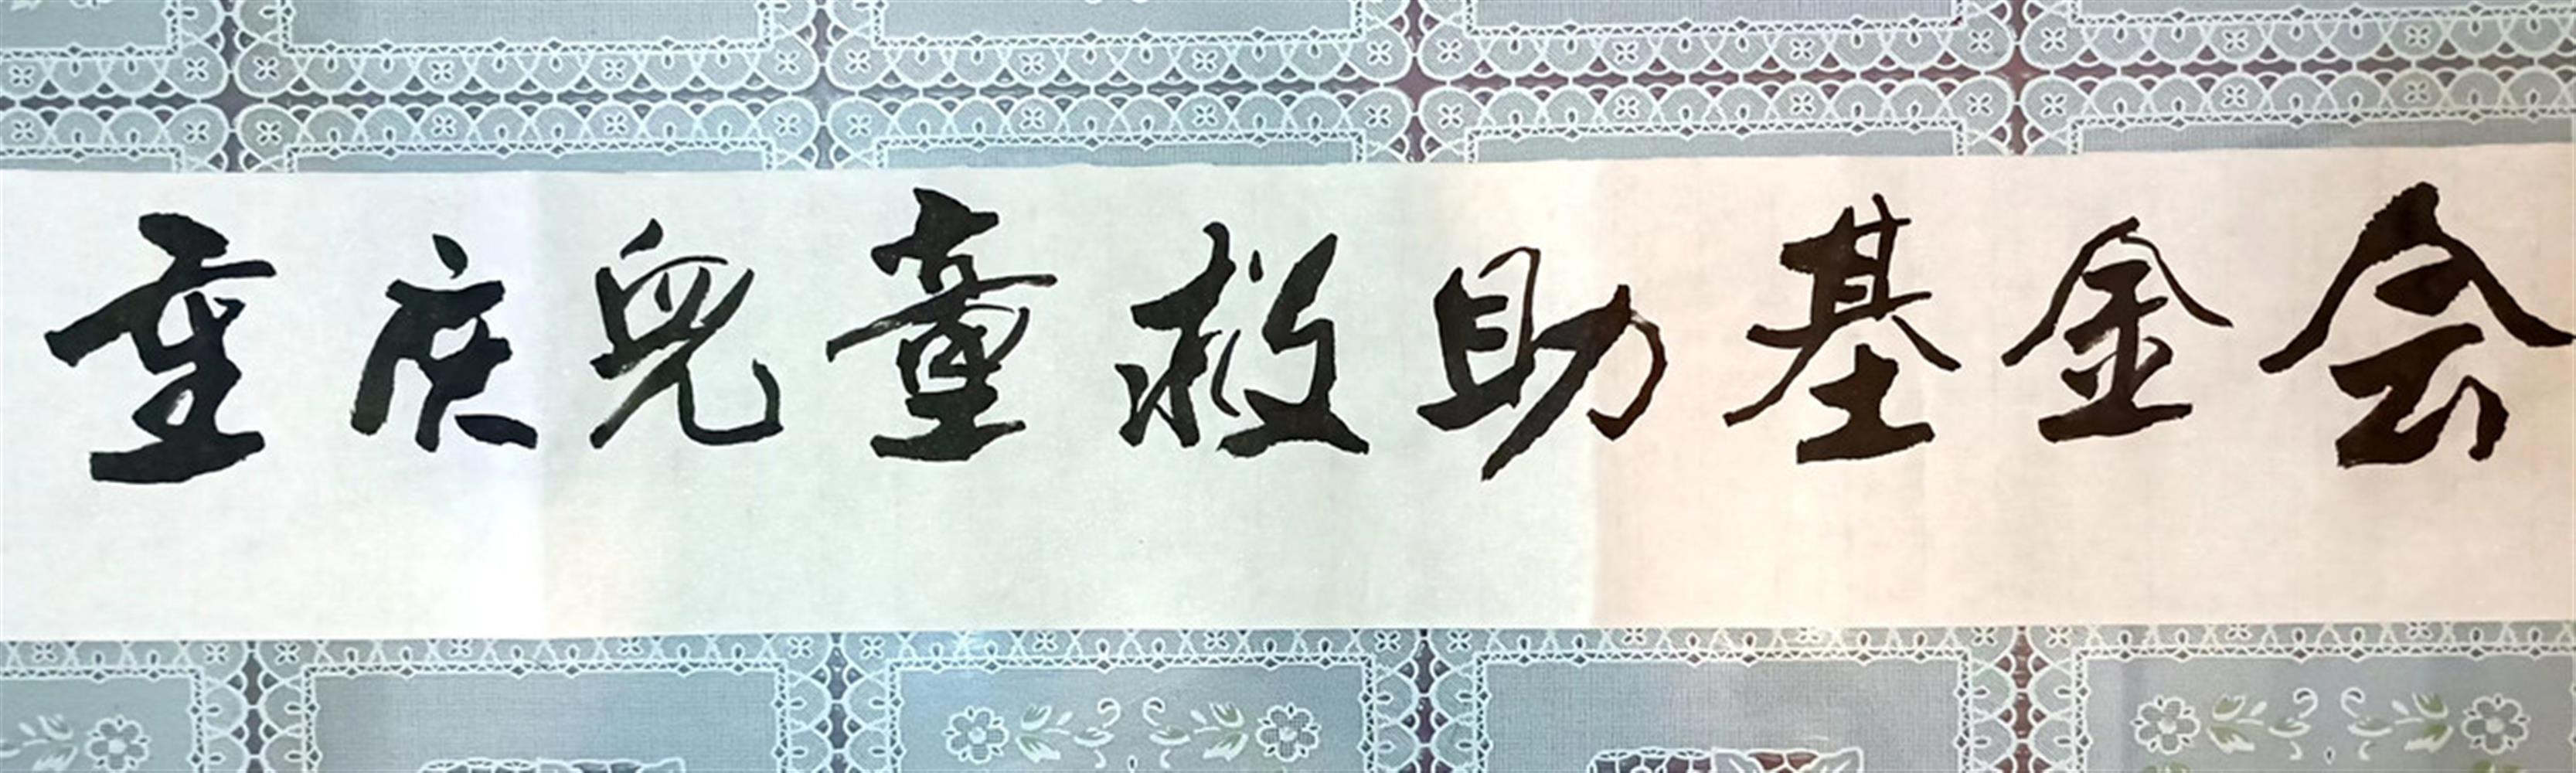 重庆兒童救助基金会